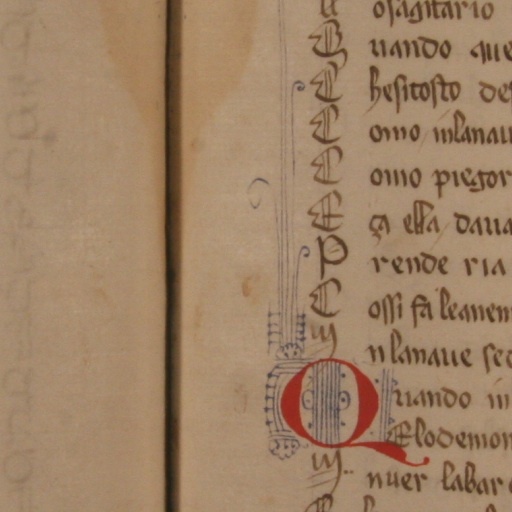 osagitario
Quando que
Chesitosto de
Como inlanau
Como piegor
Eça ella daua
Prende ria
Cossi fa leanem
Inlanaue sec
Quando in
Elodemon
Inuer labar